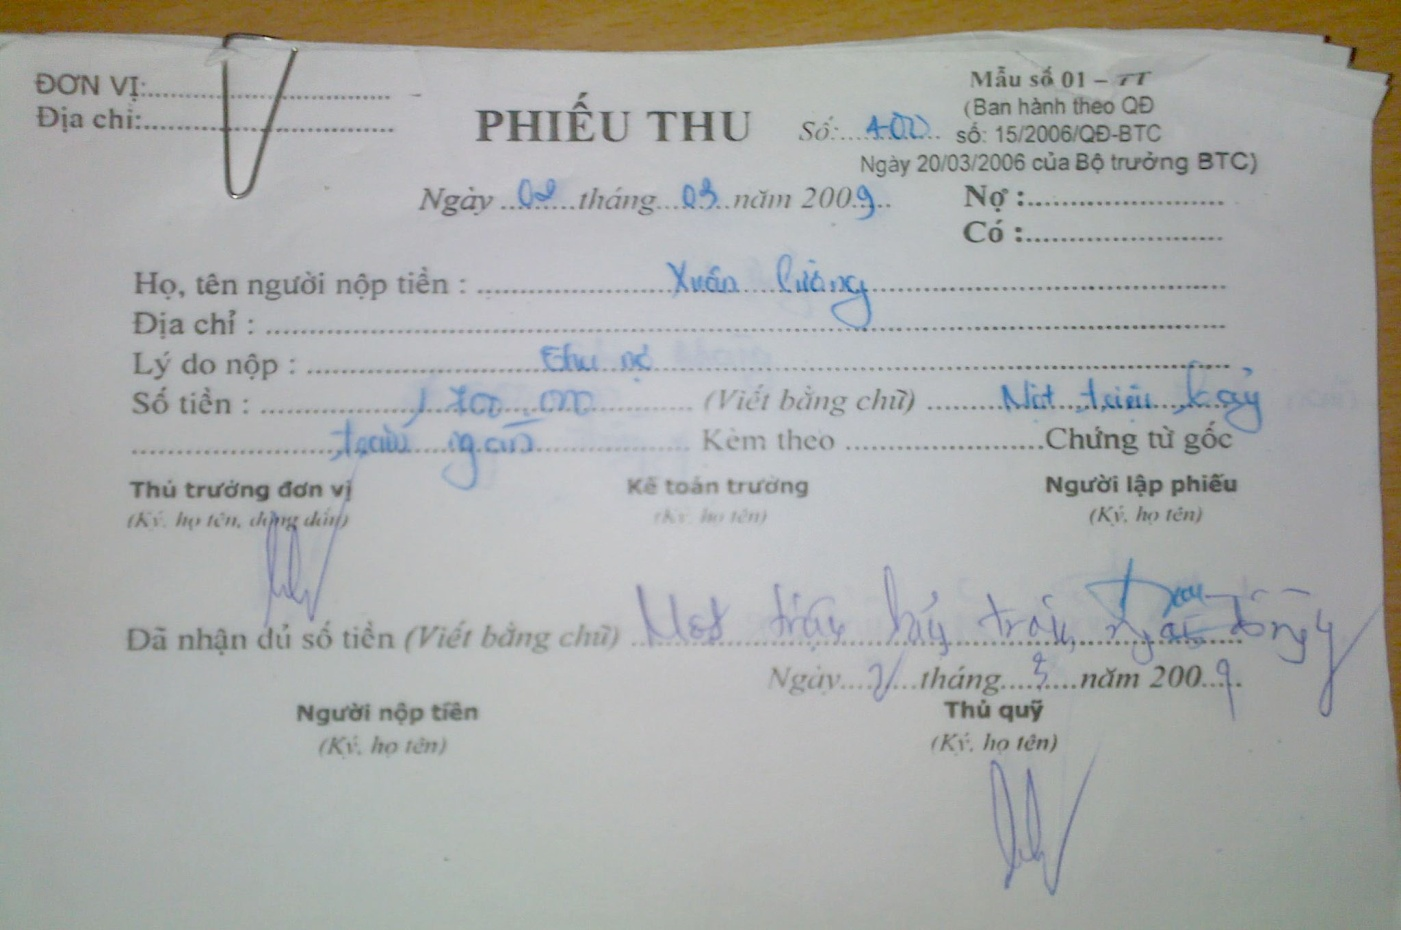 ĐƠN VỊ:
Địa chỉ:
PHIẾU THU
Số: 400
Mẫu số 01 – TT
(Ban hành theo QĐ
số: 15/2006/QĐ-BTC
Ngày 20/03/2006 của Bộ trưởng BTC)
Ngày 02 tháng 03 năm 2009
Nợ :
Có :
Họ, tên người nộp tiền : Xuân
Địa chỉ :
Lý do nộp : thu nợ
Số tiền : 1,700.000 (Viết bằng chữ) Một triệu bảy
trăm ngàn Kèm theo Chứng từ gốc
Thủ trưởng đơn vị Kế toán trưởng Người lập phiếu
(Ký, họ tên, đóng dấu) (Ký, họ tên) (Ký, họ tên)
Đã nhận đủ số tiền (Viết bằng chữ) Một triệu bảy trăm ngàn đồng
Ngày 2 tháng 3 năm 2009
Người nộp tiền Thủ quỹ
(Ký, họ tên) (Ký, họ tên)